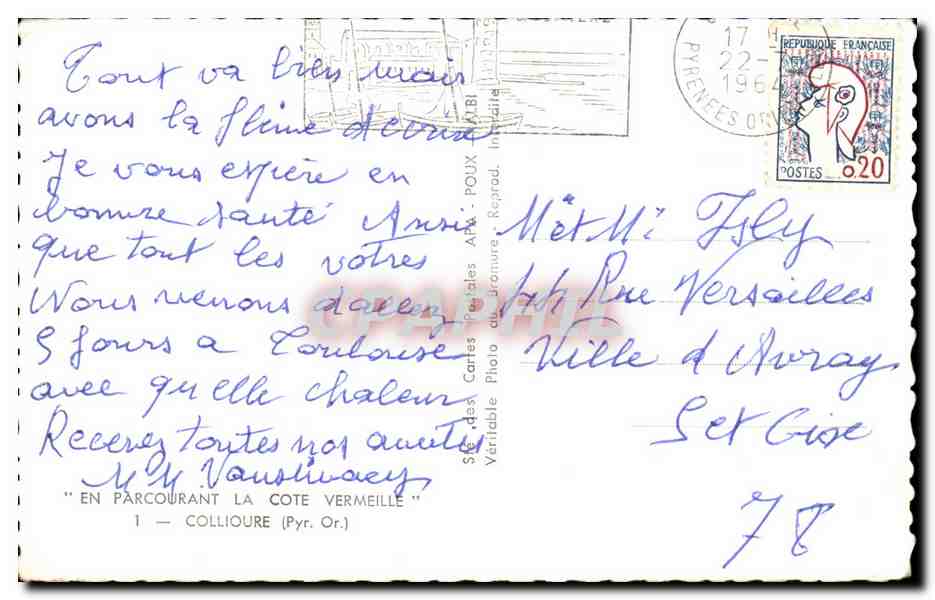 Tout va bien mais
avons la flème d'écrire
Je vous espère en
bonnne santé Ainsi
que tout les votres
Nous venons d'allez
5 jours a Toulouse
avec qu'elle chaleur
Recevez toutes nos amitiés
M M.
"EN PARCOURANT LA COTE VERMEILLE"
1 — COLLIOURE (Pyr. Or.)
Sté des Cartes Postales APA - POUX ALBI
Véritable Photo au Bromure - Reprod. Interdite
17 H
22 -
1964
PYRENEES OR
REPUBLIQUE FRANÇAISE
POSTES 0,20
M et Me Isly
Rue Versailles
Ville d Avray
S et Oise
78
CPAPHIL